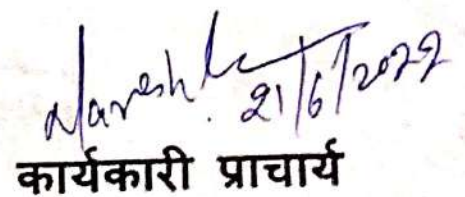 Naresh K
21/6/2022
कार्यकारी प्राचार्य